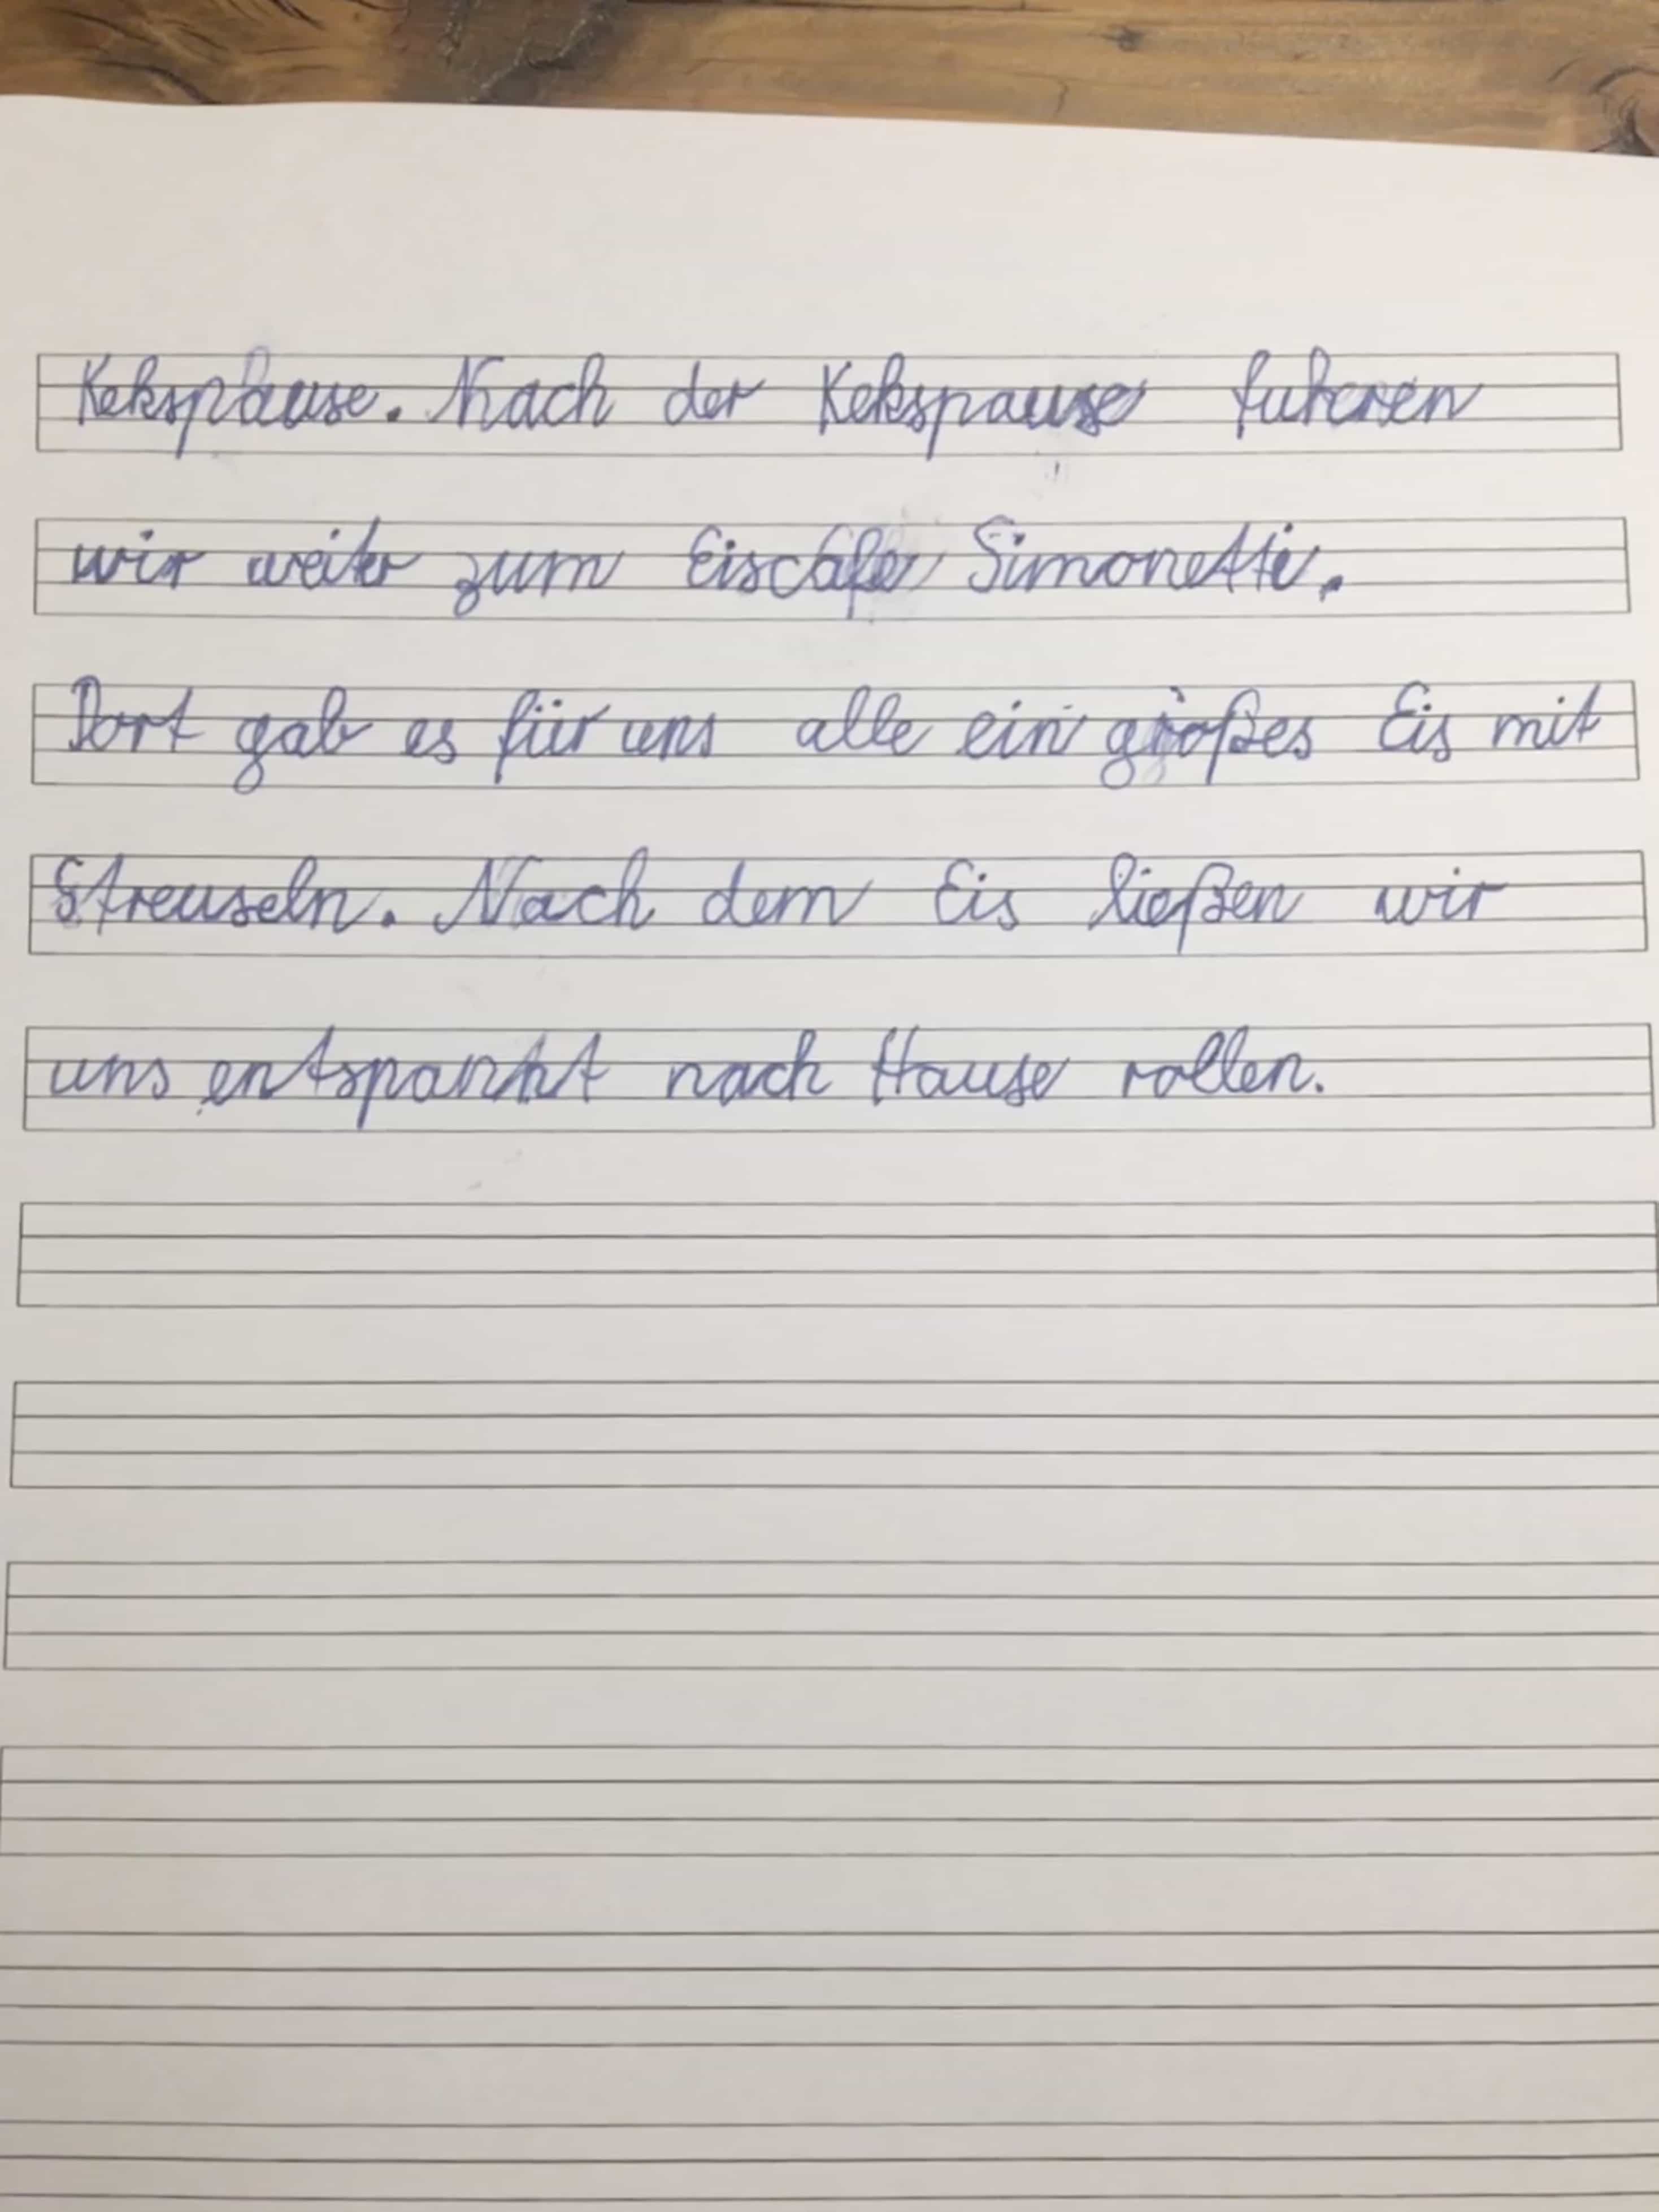 Kekspause. Nach der Kekspause fuhren
wir weiter zum Eiscafe Simonetti.
Dort gab es für uns alle ein großes Eis mit
Streuseln. Nach dem Eis ließen wir
uns entspannt nach Hause rollen.